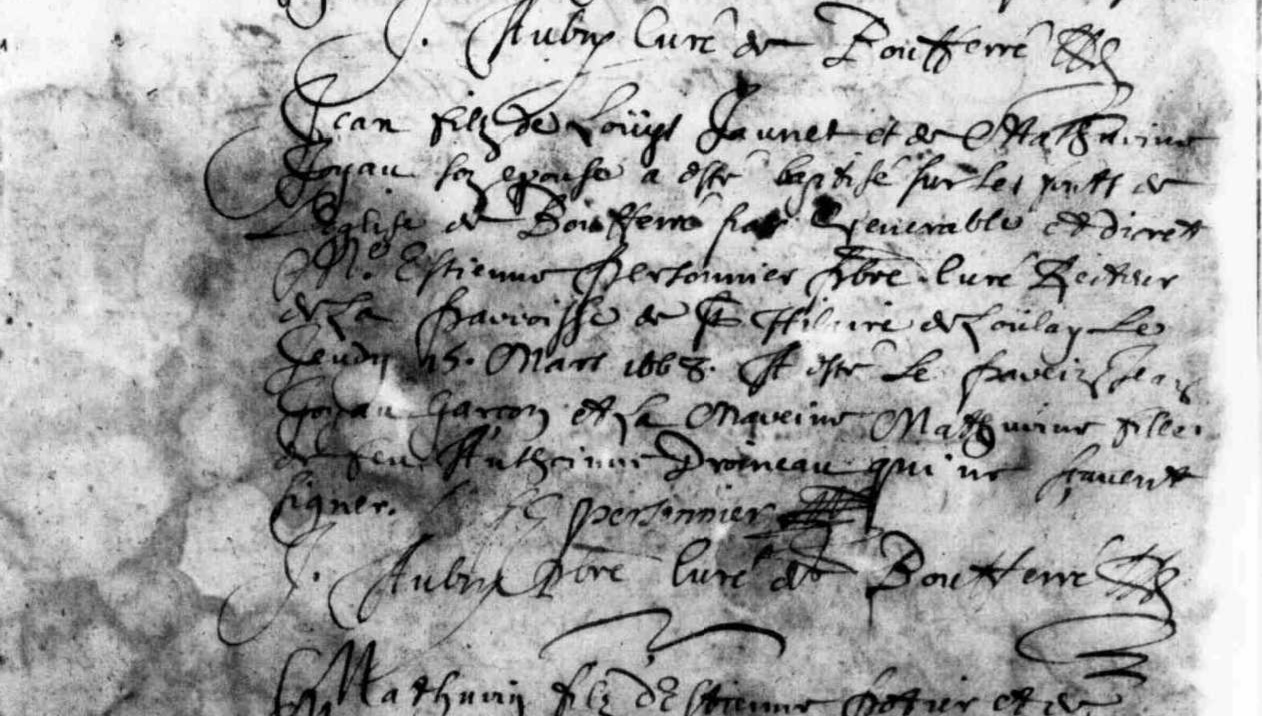 J. Aubry Curé de Boufferré
Jean filz de Loüys Jaunet et de Mathurine
Goyau son epouse a esté baptisé sur les fonts de
L'eglise de Boufferré par Venerable et discrett
Me Estienne Personnier Pbre Curé Recteur
de La Parroisse de St Hilaire de Loulay Le
Jeudy 15. Mars 1663. St esté Le Parein Jean
Goyau Garcon et La Mareine Mathurine fille
de feu Anthoinne Droineau qui ne savent
signer. E Personnier
J. Aubry Pbre Curé de Boufferré
Mathurin filz d'Estienne Potier et de